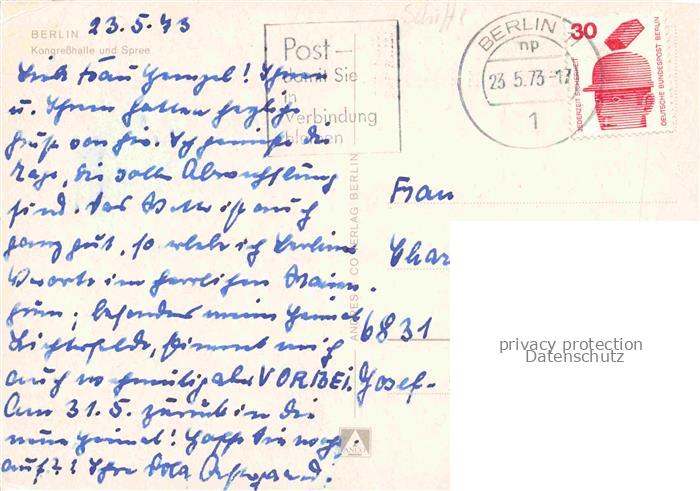 23.5.73
BERLIN
Kongreßhalle und Spree
Liebe Frau Hempel! Ihnen
u. Ihrem Gatten herzliche
Grüße von hier. Ich genieße die
Tage, die voller Abwechslung
sind. Das Wetter ist auch
ganz gut, so erlebe ich Berlins
Vororte im herrlichen Maien-
grün; besonders meine Heimat
Lichterfelde, stimmt mich
auch wehmütig aber VORBEI.
Am 31.5. zurück in die
neue Heimat! Hoffe Sie noch
auf?! Ihre
Post —
Sie
in
Verbindung
bleiben
BERLIN
np
23.5.73-17
1
30
JEDERZEIT SICHERHEIT
DEUTSCHE BUNDESPOST BERLIN
ANDRES + CO VERLAG BERLIN
Frau
Char
6831
Josef-
privacy protection
Datenschutz